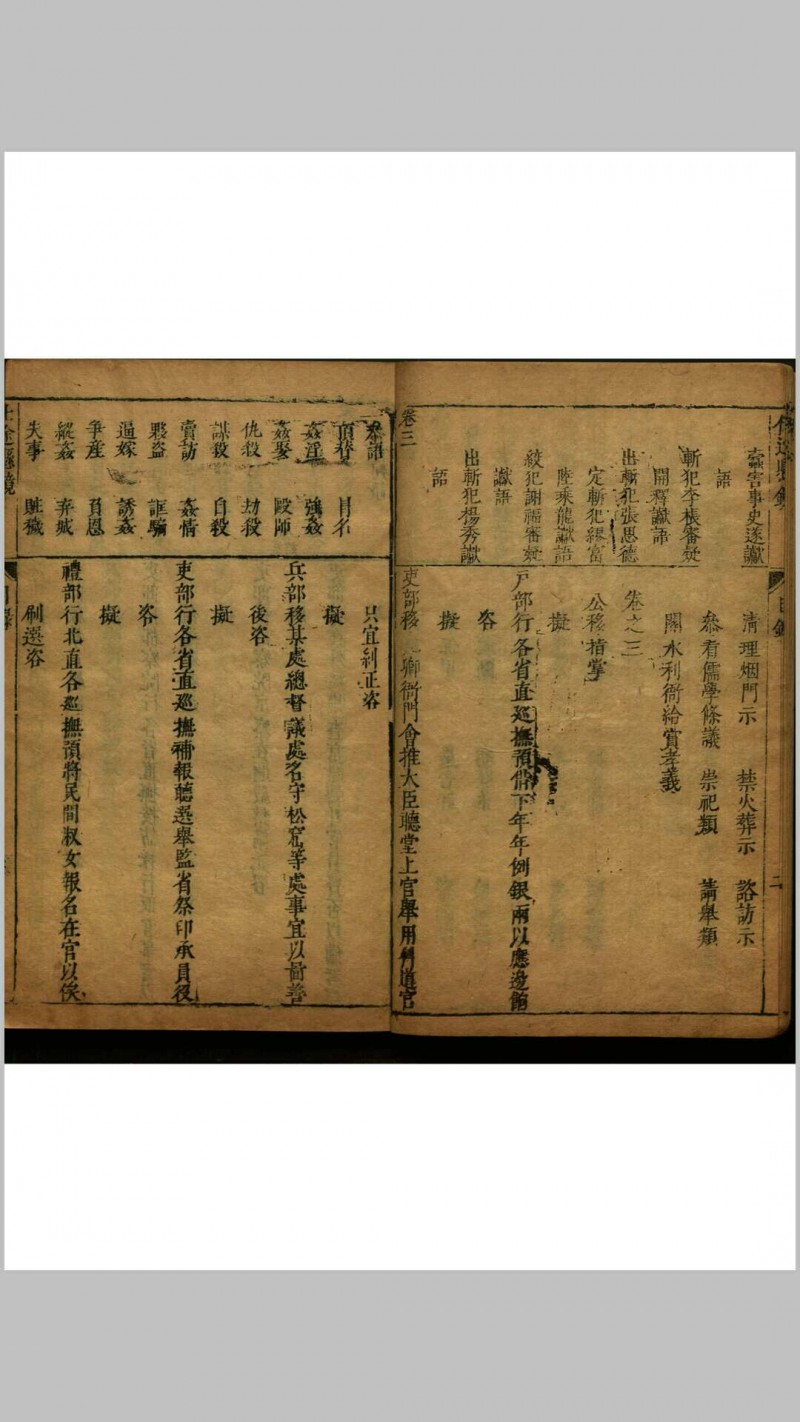 蠹害事史遂讞
語
斬犯李棖審矜
開釋讞語
出斬犯張思德
定斬犯繆富
陸乘龍讞語
絞犯謝福審矜
讞語
出斬犯楊秀讞
語
卷三
清理烟門示　禁火葬示　諮訪示
叅看儒學條議　崇祀類　薦舉類
關水利衙給賞孝義
卷之三
公移指掌
擬
戶部行各省直廵撫預備下年年例銀兩以應邊餉
咨
擬
吏部移九卿衙門會推大臣聽堂上官舉用科道官
叅語
頂替　冒名
姦淫　強姦
姦娶　毆師
仇殺　劫殺
謀殺　自殺
賣訪　姦情
夥盜　誆騙
逼嫁　誘姦
爭產　負恩
縱姦　弃城
失事　賍穢
只宜糾正咨
擬
兵部移某處總督議處名守松窎等處事宜以啚善
後咨
擬
吏部行各省直廵撫補報聽選舉監省祭印承員役
咨
擬
禮部行北直各廵撫預將民間淑女報名在官以俟
刷選咨